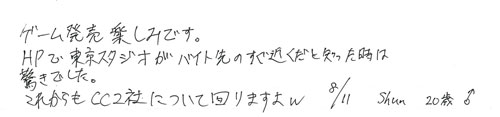 ゲーム発売 楽しみです。
HPで東京スタジオがバイト先のすぐ近くだと知った時は
驚きでした。
これからもCC2社について回りますよw 8/11 Shun 20歳 ♂